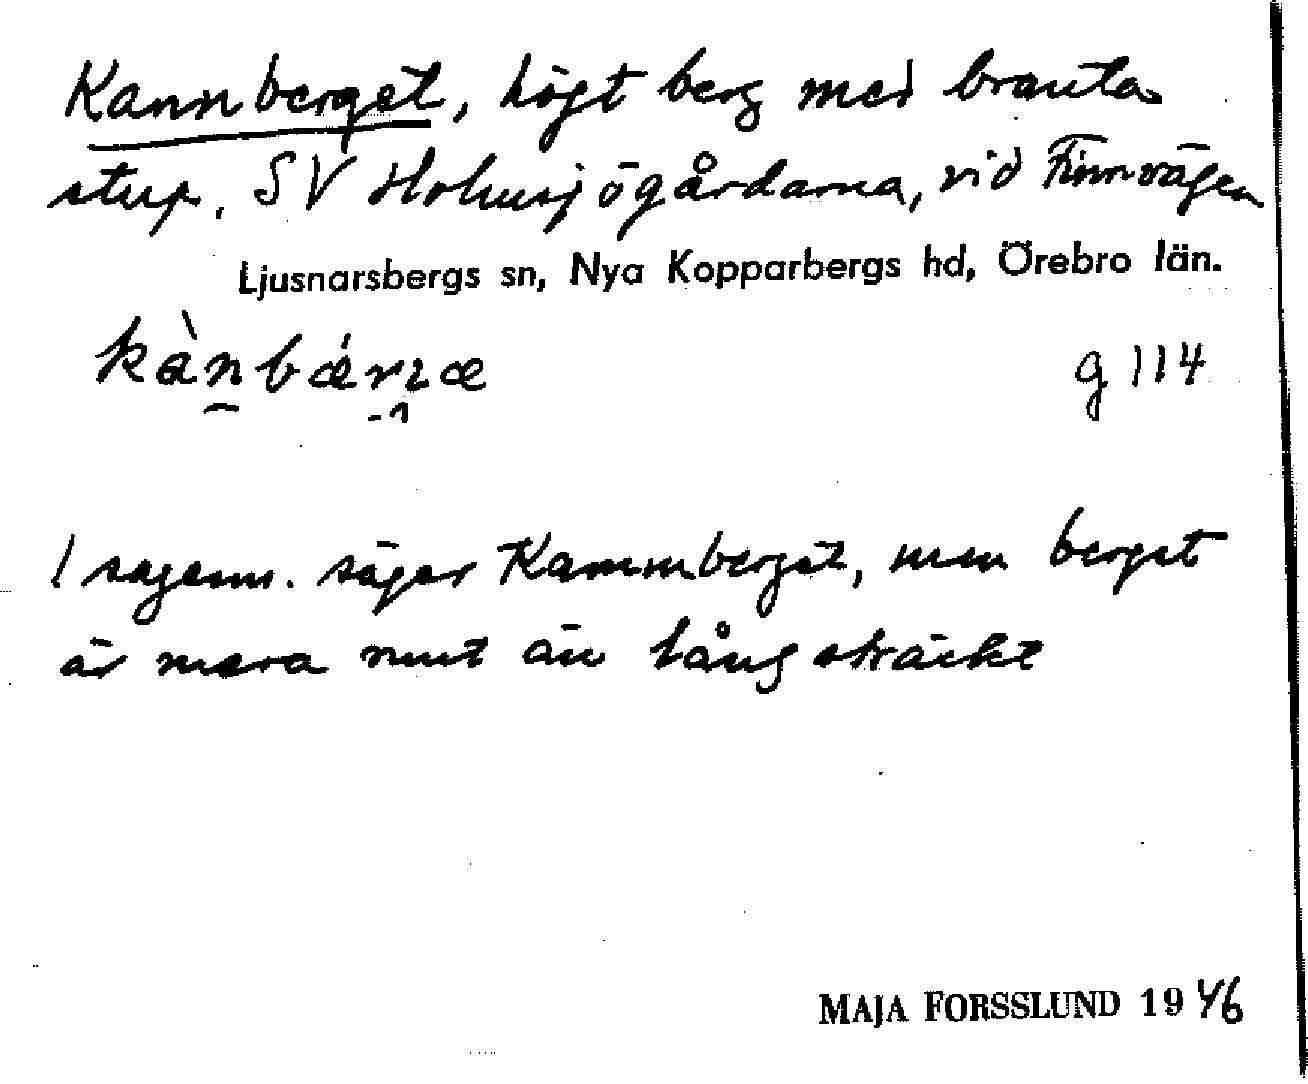 Kannberget, högt berg med branta
stup, SV Hohusjögårdarna, vid Finnvägen
Ljusnarsbergs sn, Nya Kopparbergs hd, Örebro län.
kànbǽrɩæ g 114
1 sagesm. säger Kammberget, men berget
är mera runt än långsträckt
MAJA FORSSLUND 1946